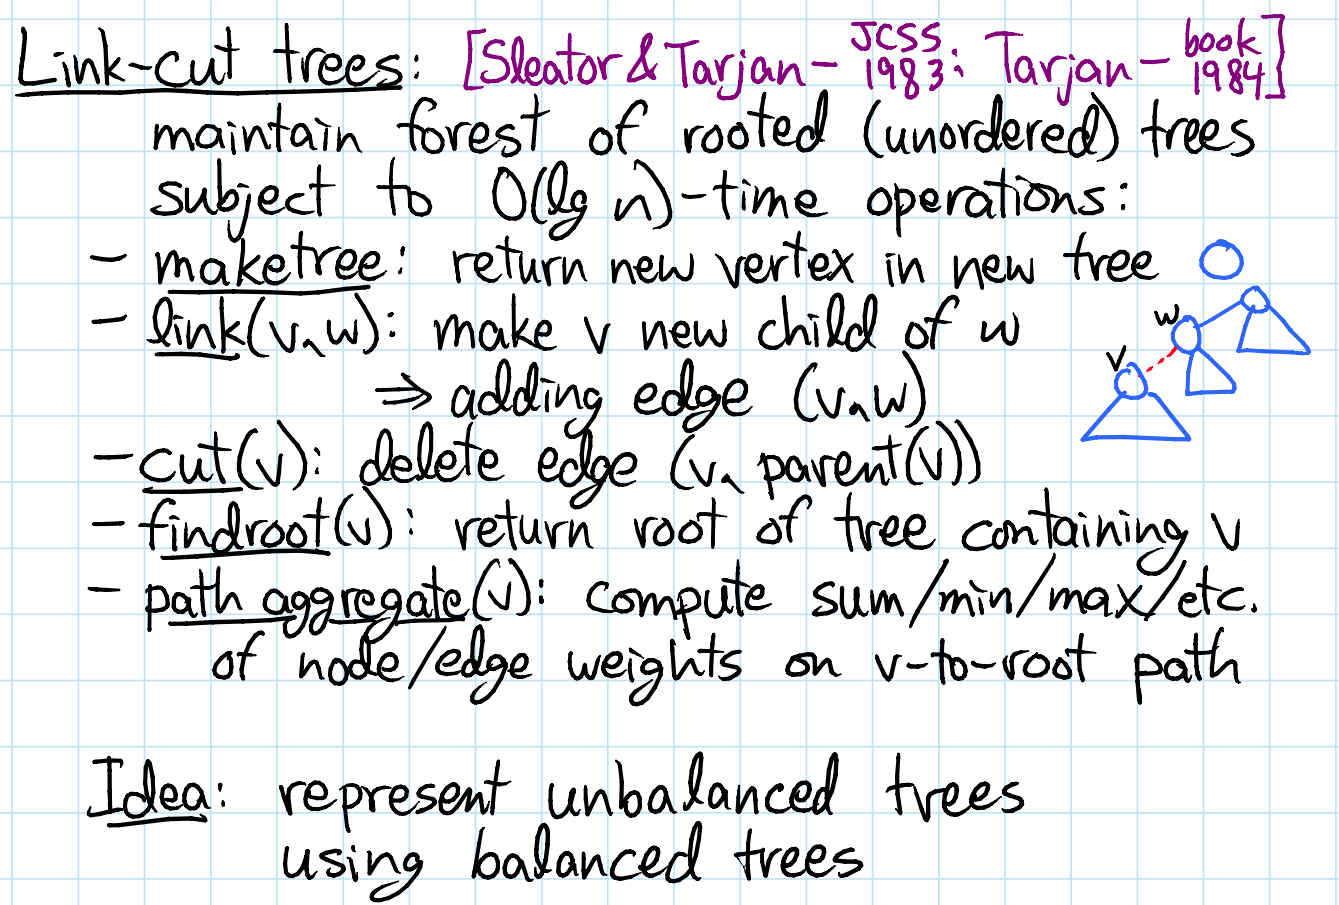 Link-cut trees: [Sleator & Tarjan - JCSS 1983; Tarjan - book 1984]
maintain forest of rooted (unordered) trees
subject to O(lg n)-time operations:
- maketree: return new vertex in new tree
- link(v,w): make v new child of w
⇒ adding edge (v,w)
w
v
- cut(v): delete edge (v, parent(v))
- findroot(v): return root of tree containing v
- path aggregate(v): compute sum/min/max/etc.
of node/edge weights on v-to-root path
Idea: represent unbalanced trees
using balanced trees